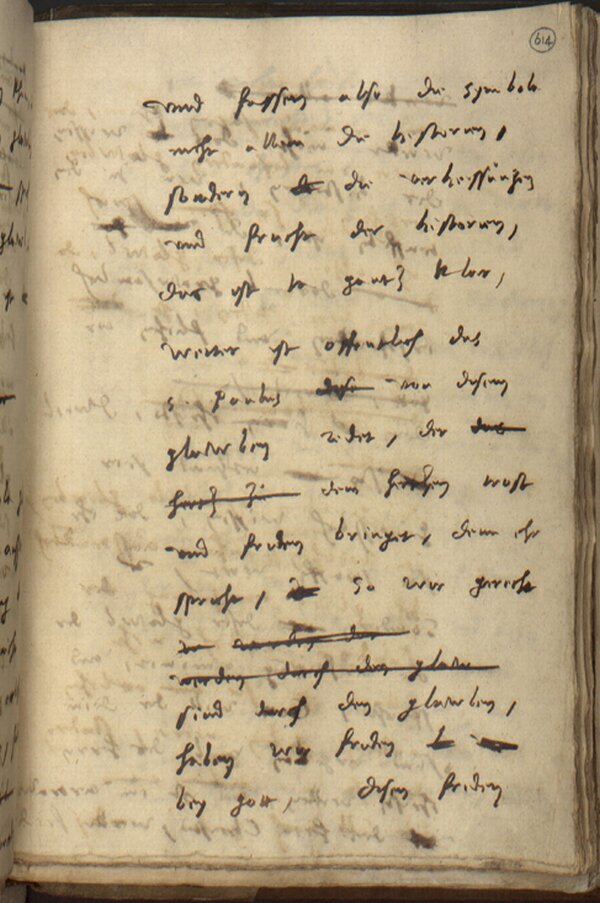 614
vnd fassen also die symbola
nicht allein die historien,
sondern die verheissungen
vnd frucht der historien,
das ist ie gantz klar,
weiter ist offentlich das
s. paulus dise von disem
glawben redet, der das
hertz zu dem hertzen trost
vnd friden bringet, denn ehr
spricht, So wir gerecht
werden durch den glawb
sind durch den glawben,
haben wir friden
bey gott, disen friden